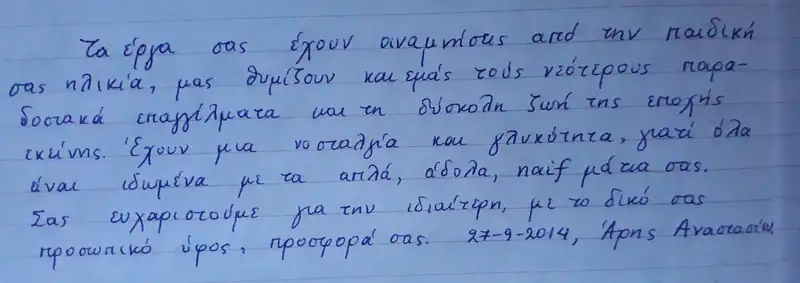 Τα έργα σας έχουν αναμνήσεις από την παιδική
σας ηλικία, μας θυμίζουν και εμάς τους νεότερους παρα-
δοσιακά επαγγέλματα και τη δύσκολη ζωή της εποχής
εκείνης. Έχουν μια νοσταλγία και γλυκότητα, γιατί όλα
είναι ιδωμένα με τα απλά, άδολα, naif μάτια σας.
Σας ευχαριστούμε για την ιδιαίτερη, με το δικό σας
προσωπικό ύφος, προσφορά σας. 27-9-2014, Άρης Αναστασίου